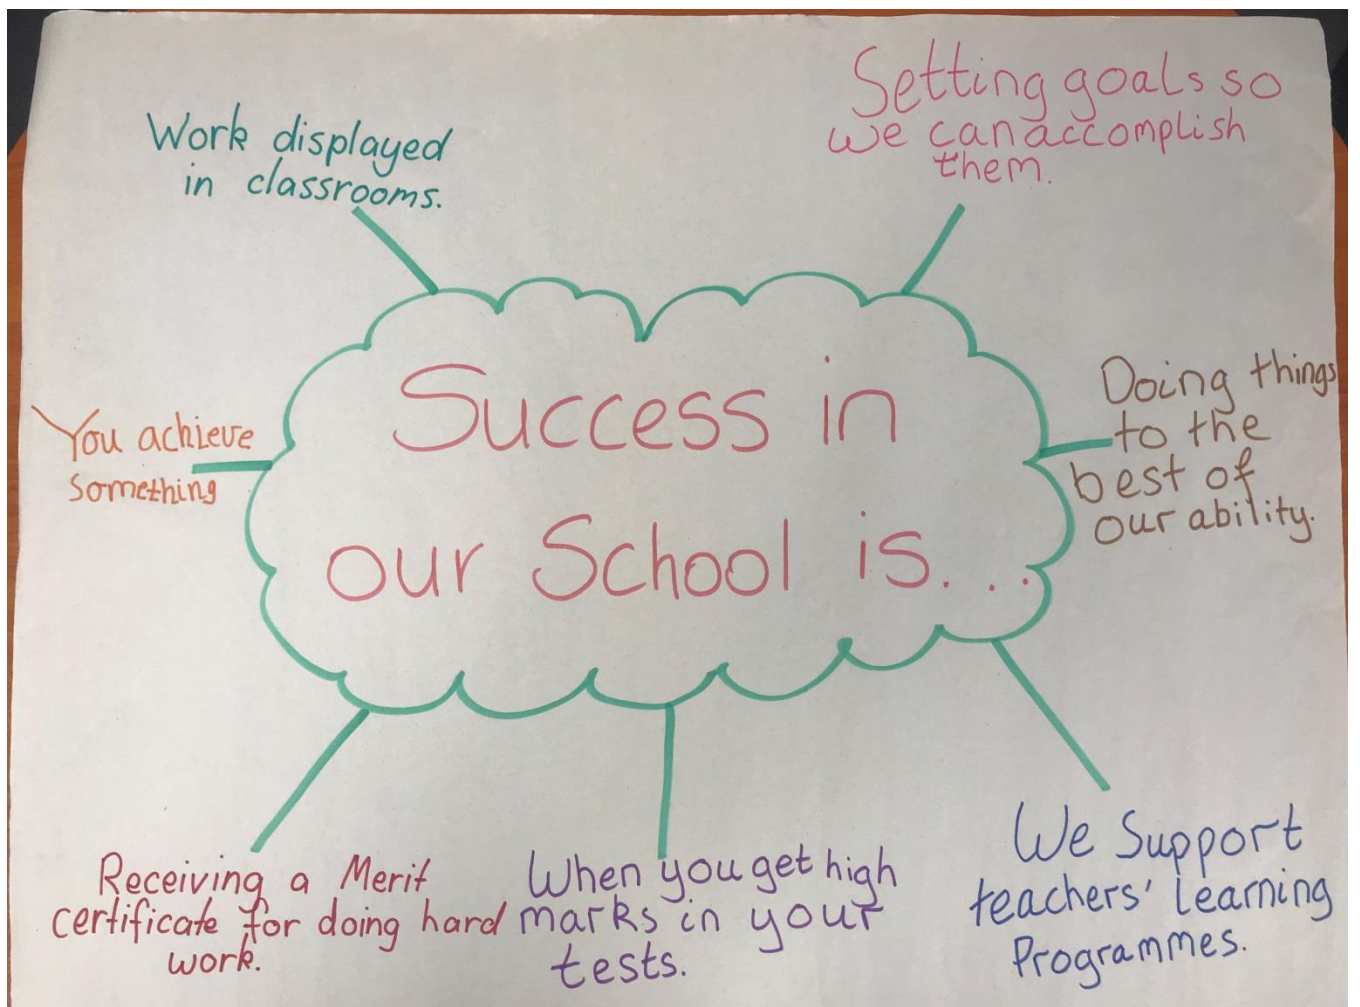 Work displayed
in classrooms.
Setting goals so
we can accomplish
them.
You achieve
something
Success in
our School is...
Doing things
to the
best of
our ability.
Receiving a Merit
certificate for doing hard
work.
When you get high
marks in your
tests.
We Support
teachers' Learning
Programmes.